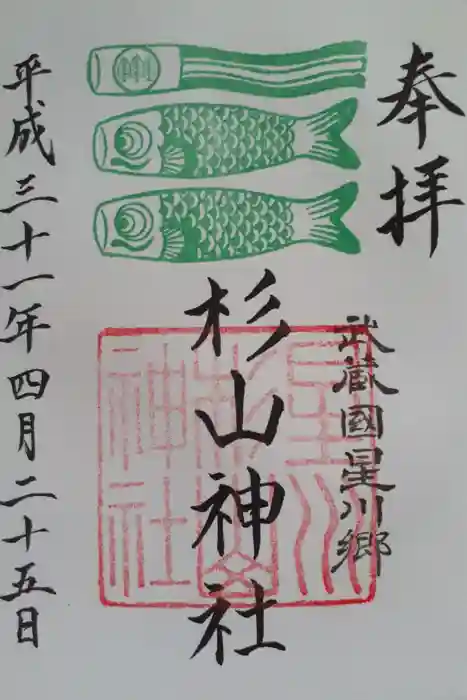 奉拝
武蔵國星川郷
杉山神社
星川杉山神社
平成三十一年四月二十五日